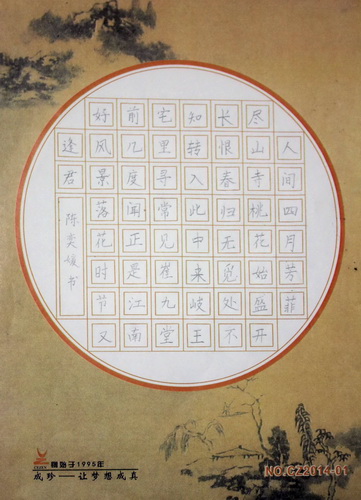 人间四月芳菲
尽山寺桃花始盛开
长恨春归无觅处不
知转入此中来岐王
宅里寻常见崔九堂
前几度闻正是江南
好风景落花时节又
逢君
陈奕媛书
始于1995年
成珍——让梦想成真
NO.CZ2014-01